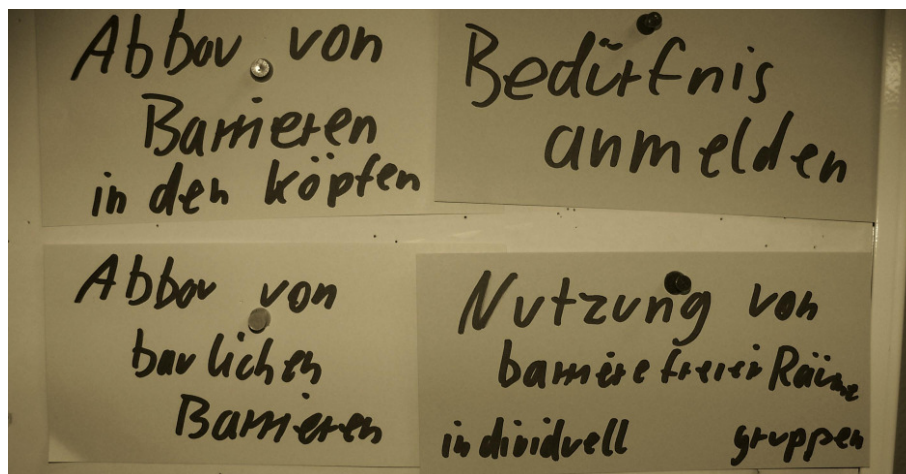 Abbau von
Barrieren
in den köpfen
Bedürfnis
anmelden
Abbau von
baulichen
Barrieren
Nutzung von
barrierefreier Räume
individuell gruppen